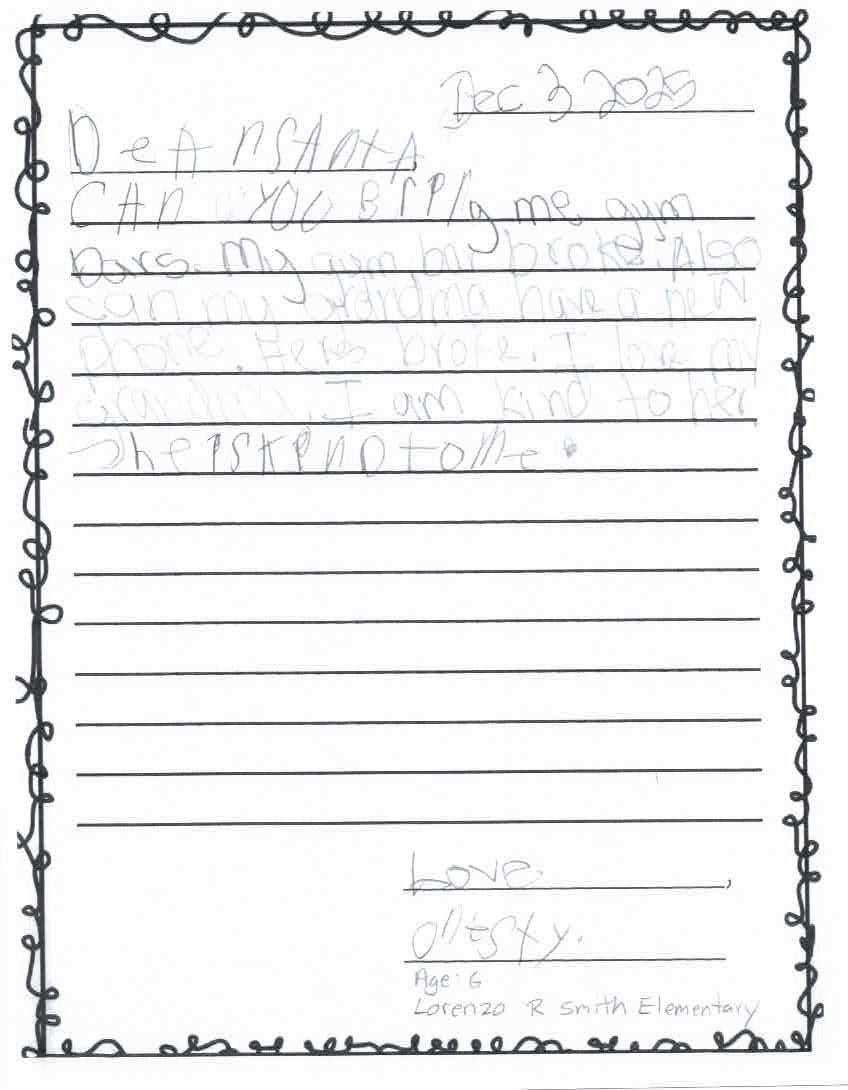 Dec 3 2025
DeAr SAntA,
CAn YOU Bring me gym
bars. My gym bar broke. Also
can my grandma have a new
phone. Heres broke. I love my
Grandma. I am kind to her
She is KinD to Me.
Love,
Age: 6
Lorenzo R Smith Elementary